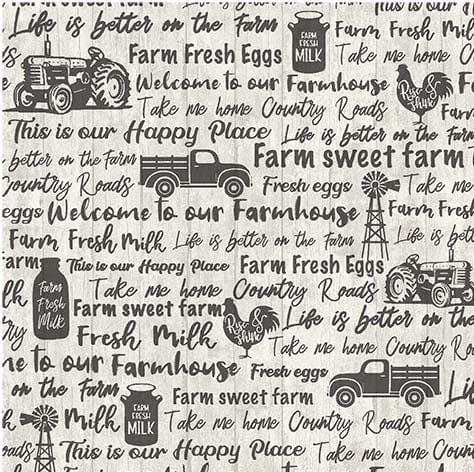 Life is better on the Farm
Farm Fresh Milk
FARM FRESH MILK
Farm sweet farm
Farm Fresh Eggs
Take me home Cou
Welcome to our Farmhouse
Rise & Shine
Take me home Country Roads
Farm
This is our Happy Place
Life is better on the Fa
better on the Farm
Farm sweet farm
Country Roads
Fresh eggs
Take me
eggs Welcome to our Farmhouse
Farm Fresh
Farm Fresh Milk
Life is better on the Farm
Life is bett
This is our Happy Place
Farm Fresh Eggs
Farm Fresh Milk
Take me home Country Roads
Farm sweet farm
Rise & Shine
Life is better on the
Fresh Milk
Take me home Country Ro
e to our Farmhouse
Fresh eggs
on the Farm
Farm sweet farm
Milk
FARM FRESH MILK
Take me home Country Roads
Fa
This is our Happy Place
Life is better